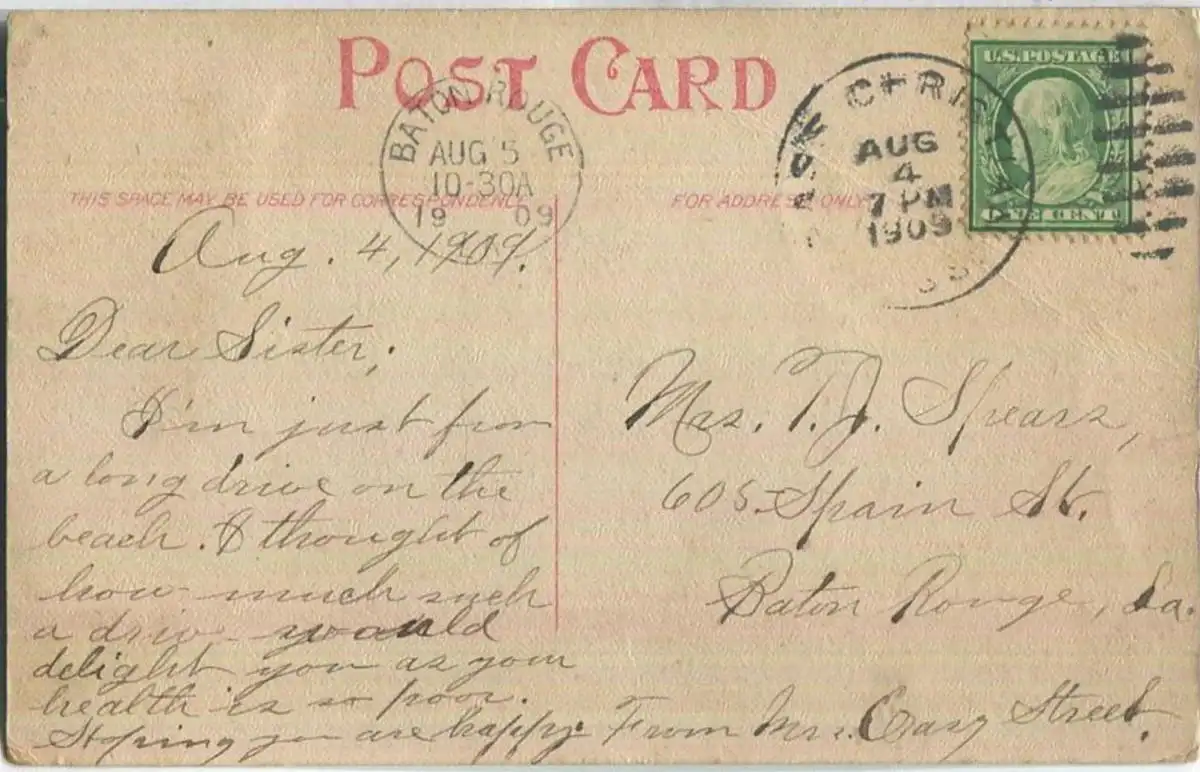 POST CARD
BATON ROUGE
AUG 5
10-30A
19 09
PASS CHRISTIAN
AUG
4
7 PM
1909
MISS
U.S. POSTAGE
ONE CENT
THIS SPACE MAY BE USED FOR CORRESPONDENCE
FOR ADDRESS ONLY
Aug. 4, 1909.
Dear Sister;
I'm just from
a long drive on the
beach. & thought of
how much such
a drive would
delight you as your
health is so poor.
Hoping you are happy. From Mrs. Street.
Mrs. T. J. Spears,
605 Spain St.
Baton Rouge, La.